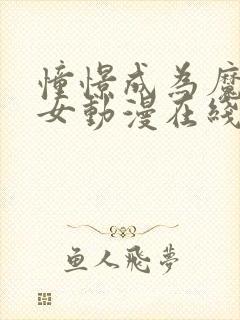 憧憬成为魔
女動漫在綫
鱼人飛夢